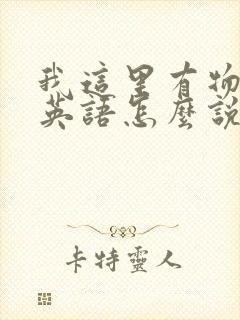 我這里有物
英語怎麼說
卡特靈人